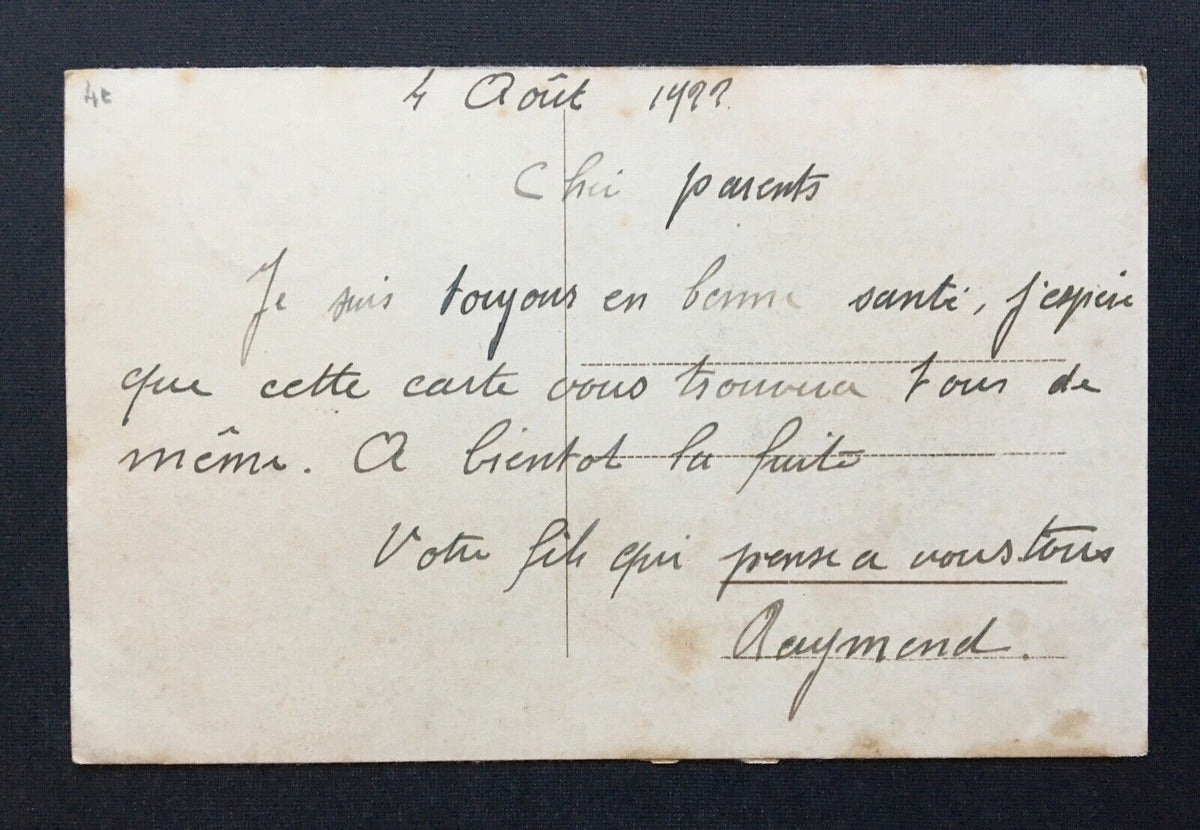 4€
4 Août 1922.
Cher parents
Je suis toujours en bonne santé, j'espère
que cette carte vous trouvera tous de
même. A bientot la fuite
Votre fils qui pense a vous tous
Raymond.